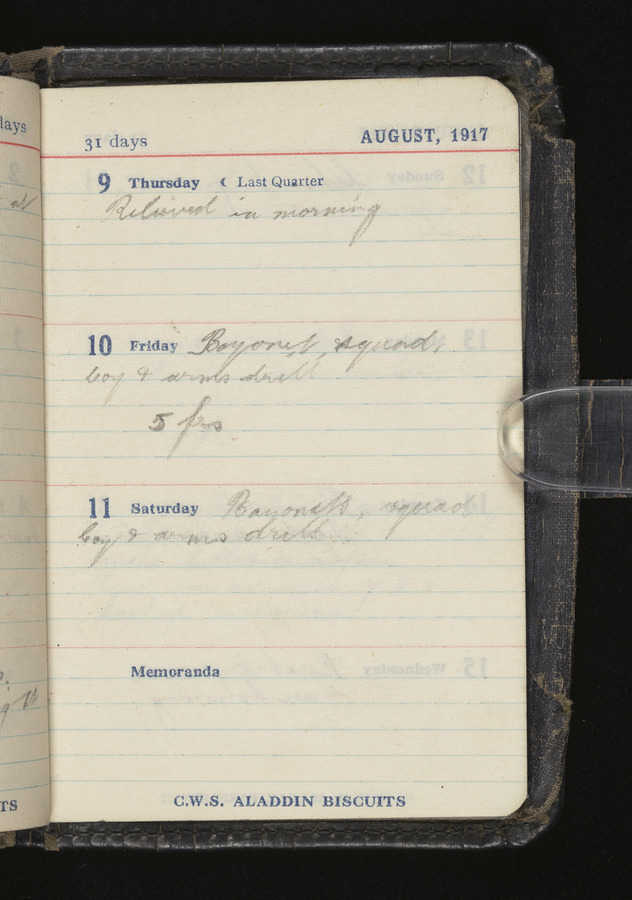 lays
31 days AUGUST, 1917
9 Thursday ☾ Last Quarter
Relieved in morning
10 Friday Bayonet, squad,
Coy & arms drill
5 frs
11 Saturday Bayonet, squad
Coy & arms drill
Memoranda
C.W.S. ALADDIN BISCUITS
TS